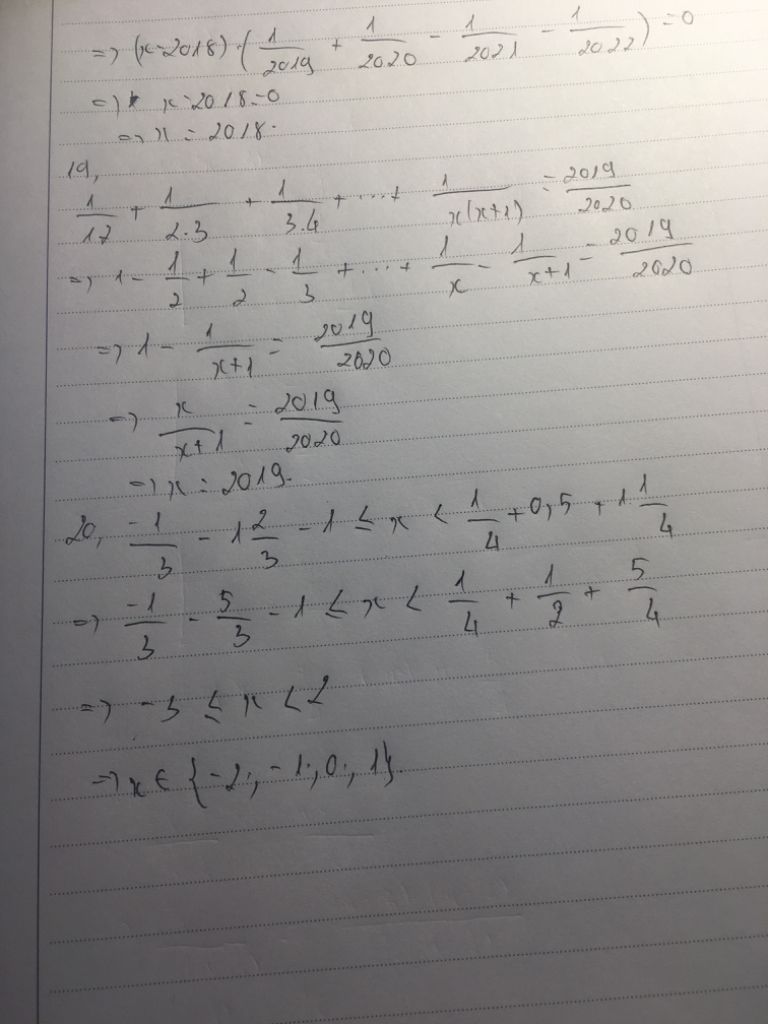 => (x-2018)·(1/2019 + 1/2020 - 1/2021 - 1/2022) = 0
=> x-2018=0
=> x = 2018.
19,
1/1.2 + 1/2.3 + 1/3.4 + ... + 1/x(x+1) = 2019/2020
=> 1 - 1/2 + 1/2 - 1/3 + ... + 1/x - 1/x+1 = 2019/2020
=> 1 - 1/x+1 = 2019/2020
=> x/x+1 = 2019/2020
=> x = 2019.
20, -1/3 - 1 2/3 - 1 ≤ x < 1/4 + 0,5 + 1 1/4
=> -1/3 - 5/3 - 1 ≤ x < 1/4 + 1/2 + 5/4
=> -3 ≤ x < 2
=> x ∈ {-2; -1; 0; 1}.